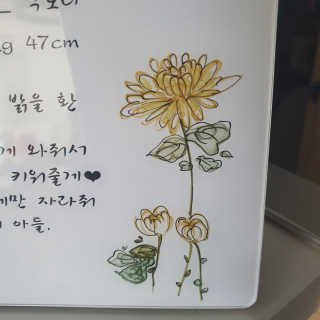 g 47cm
밝을 환
게 와줘서
키워줄게❤
게만 자라줘
아들.